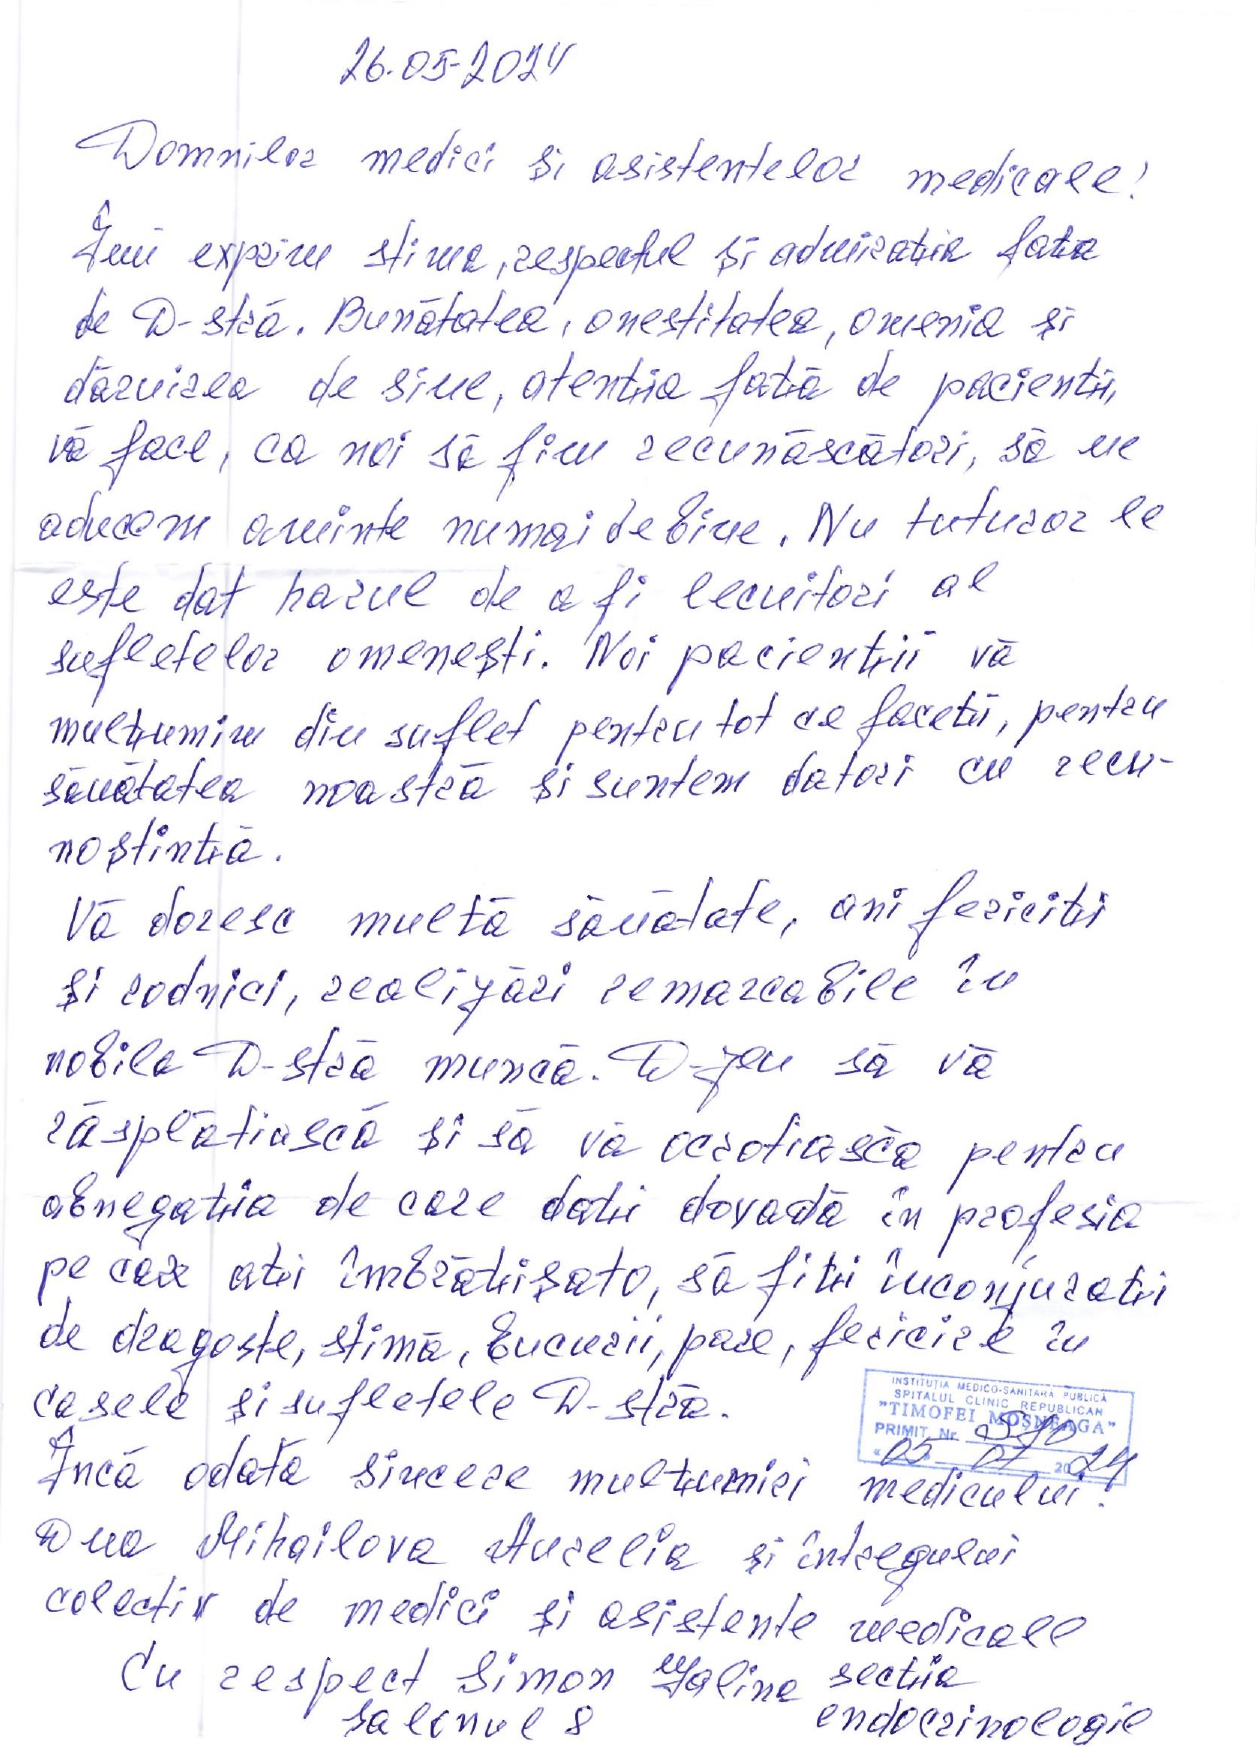 26.05.2024
Domnilor medici și asistentelor medicale!
Îmi exprim stima, respectul și admirația fația
de D-stră. Bunătatea, onestitatea, omenia și
dăruirea de sine, atenția față de pacienți,
vă face, ca noi să fim recunăscători, să ne
aducem aminte numai de bine. Nu tuturor le
este dat harul de a fi lecuitori al
sufletelor omenești. Noi pacienții vă
mulțumim din suflet pentru tot ce faceți, pentru
sănătatea noastră și suntem datori cu recu-
noștință.
Vă doresc multă sănătate, ani fericiți
și rodnici, realizări remarcabile în
nobila D-stră muncă. D-zeu să vă
răsplătiască și să vă ocrotiască pentru
abnegația de care dați dovadă în profesia
pe care ați îmbrățișato, să fiți înconjurați
de dragoste, stimă, bucurii, pace, fericire în
casele și sufletele D-stră.
INSTITUȚIA MEDICO-SANITARĂ PUBLICĂ
SPITALUL CLINIC REPUBLICAN
"TIMOFEI MOȘNEAGA"
PRIMIT, Nr.
" 05 " 07 2024
Încă odată sincere mulțumiri medicului!
D-na Mihailova Aurelia și întregului
colectiv de medici și asistente medicale
Cu respect Simon Galina secția
salonul 8 endocrinologie